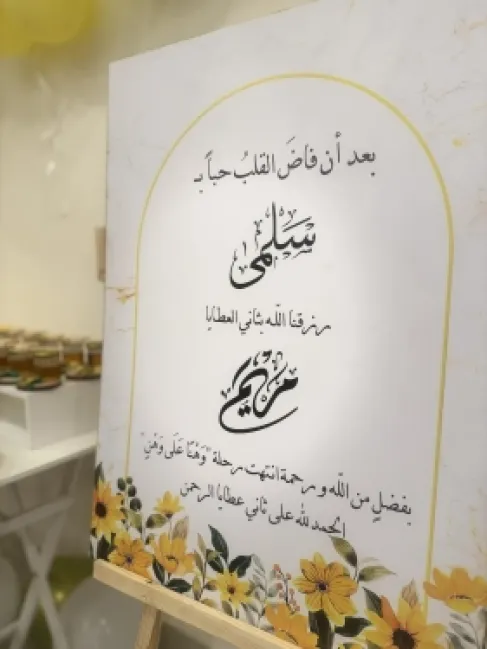 بعد أن فاضَ القلبُ حباً بـ
سَلمى
رزقنا الله بثاني العطايا
مريم
بفضلٍ من الله ورحمة انتهت مرحلة "وَهْنًا عَلَى وَهْنٍ"
الحمد لله على ثاني عطايا الرحمن